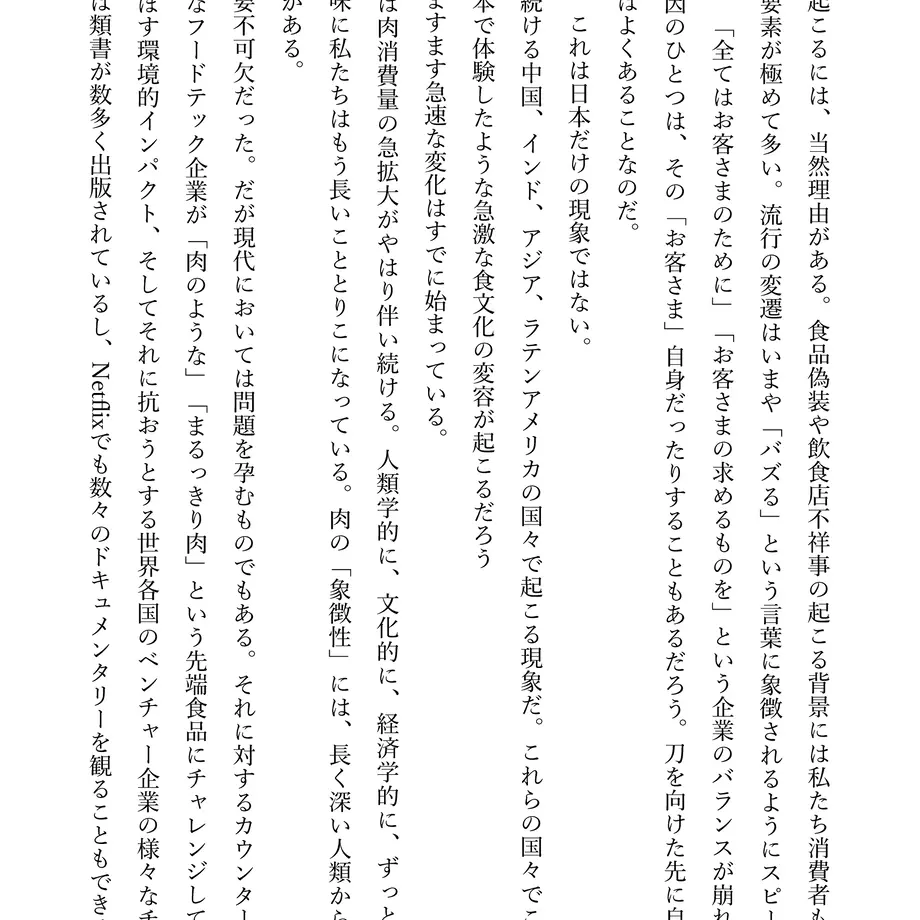 起こるには、当然理由がある。食品偽装や飲食店不祥事の起こる背景には私たち消費者も
要素が極めて多い。流行の変遷はいまや「バズる」という言葉に象徴されるようにスピー
「全てはお客さまのために」「お客さまの求めるものを」という企業のバランスが崩れ
因のひとつは、その「お客さま」自身だったりすることもあるだろう。刀を向けた先に自
はよくあることなのだ。
これは日本だけの現象ではない。
続ける中国、インド、アジア、ラテンアメリカの国々で起こる現象だ。これらの国々でこ
本で体験したような急激な食文化の変容が起こるだろう
ますます急速な変化はすでに始まっている。
は肉消費量の急拡大がやはり伴い続ける。人類学的に、文化的に、経済学的に、ずっと
味に私たちはもう長いこととりこになっている。肉の「象徴性」には、長く深い人類から
がある。
要不可欠だった。だが現代においては問題を孕むものでもある。それに対するカウンター
なフードテック企業が「肉のような」「まるっきり肉」という先端食品にチャレンジして
ぼす環境的インパクト、そしてそれに抗おうとする世界各国のベンチャー企業の様々なチ
は類書が数多く出版されているし、Netflixでも数々のドキュメンタリーを観ることもでき